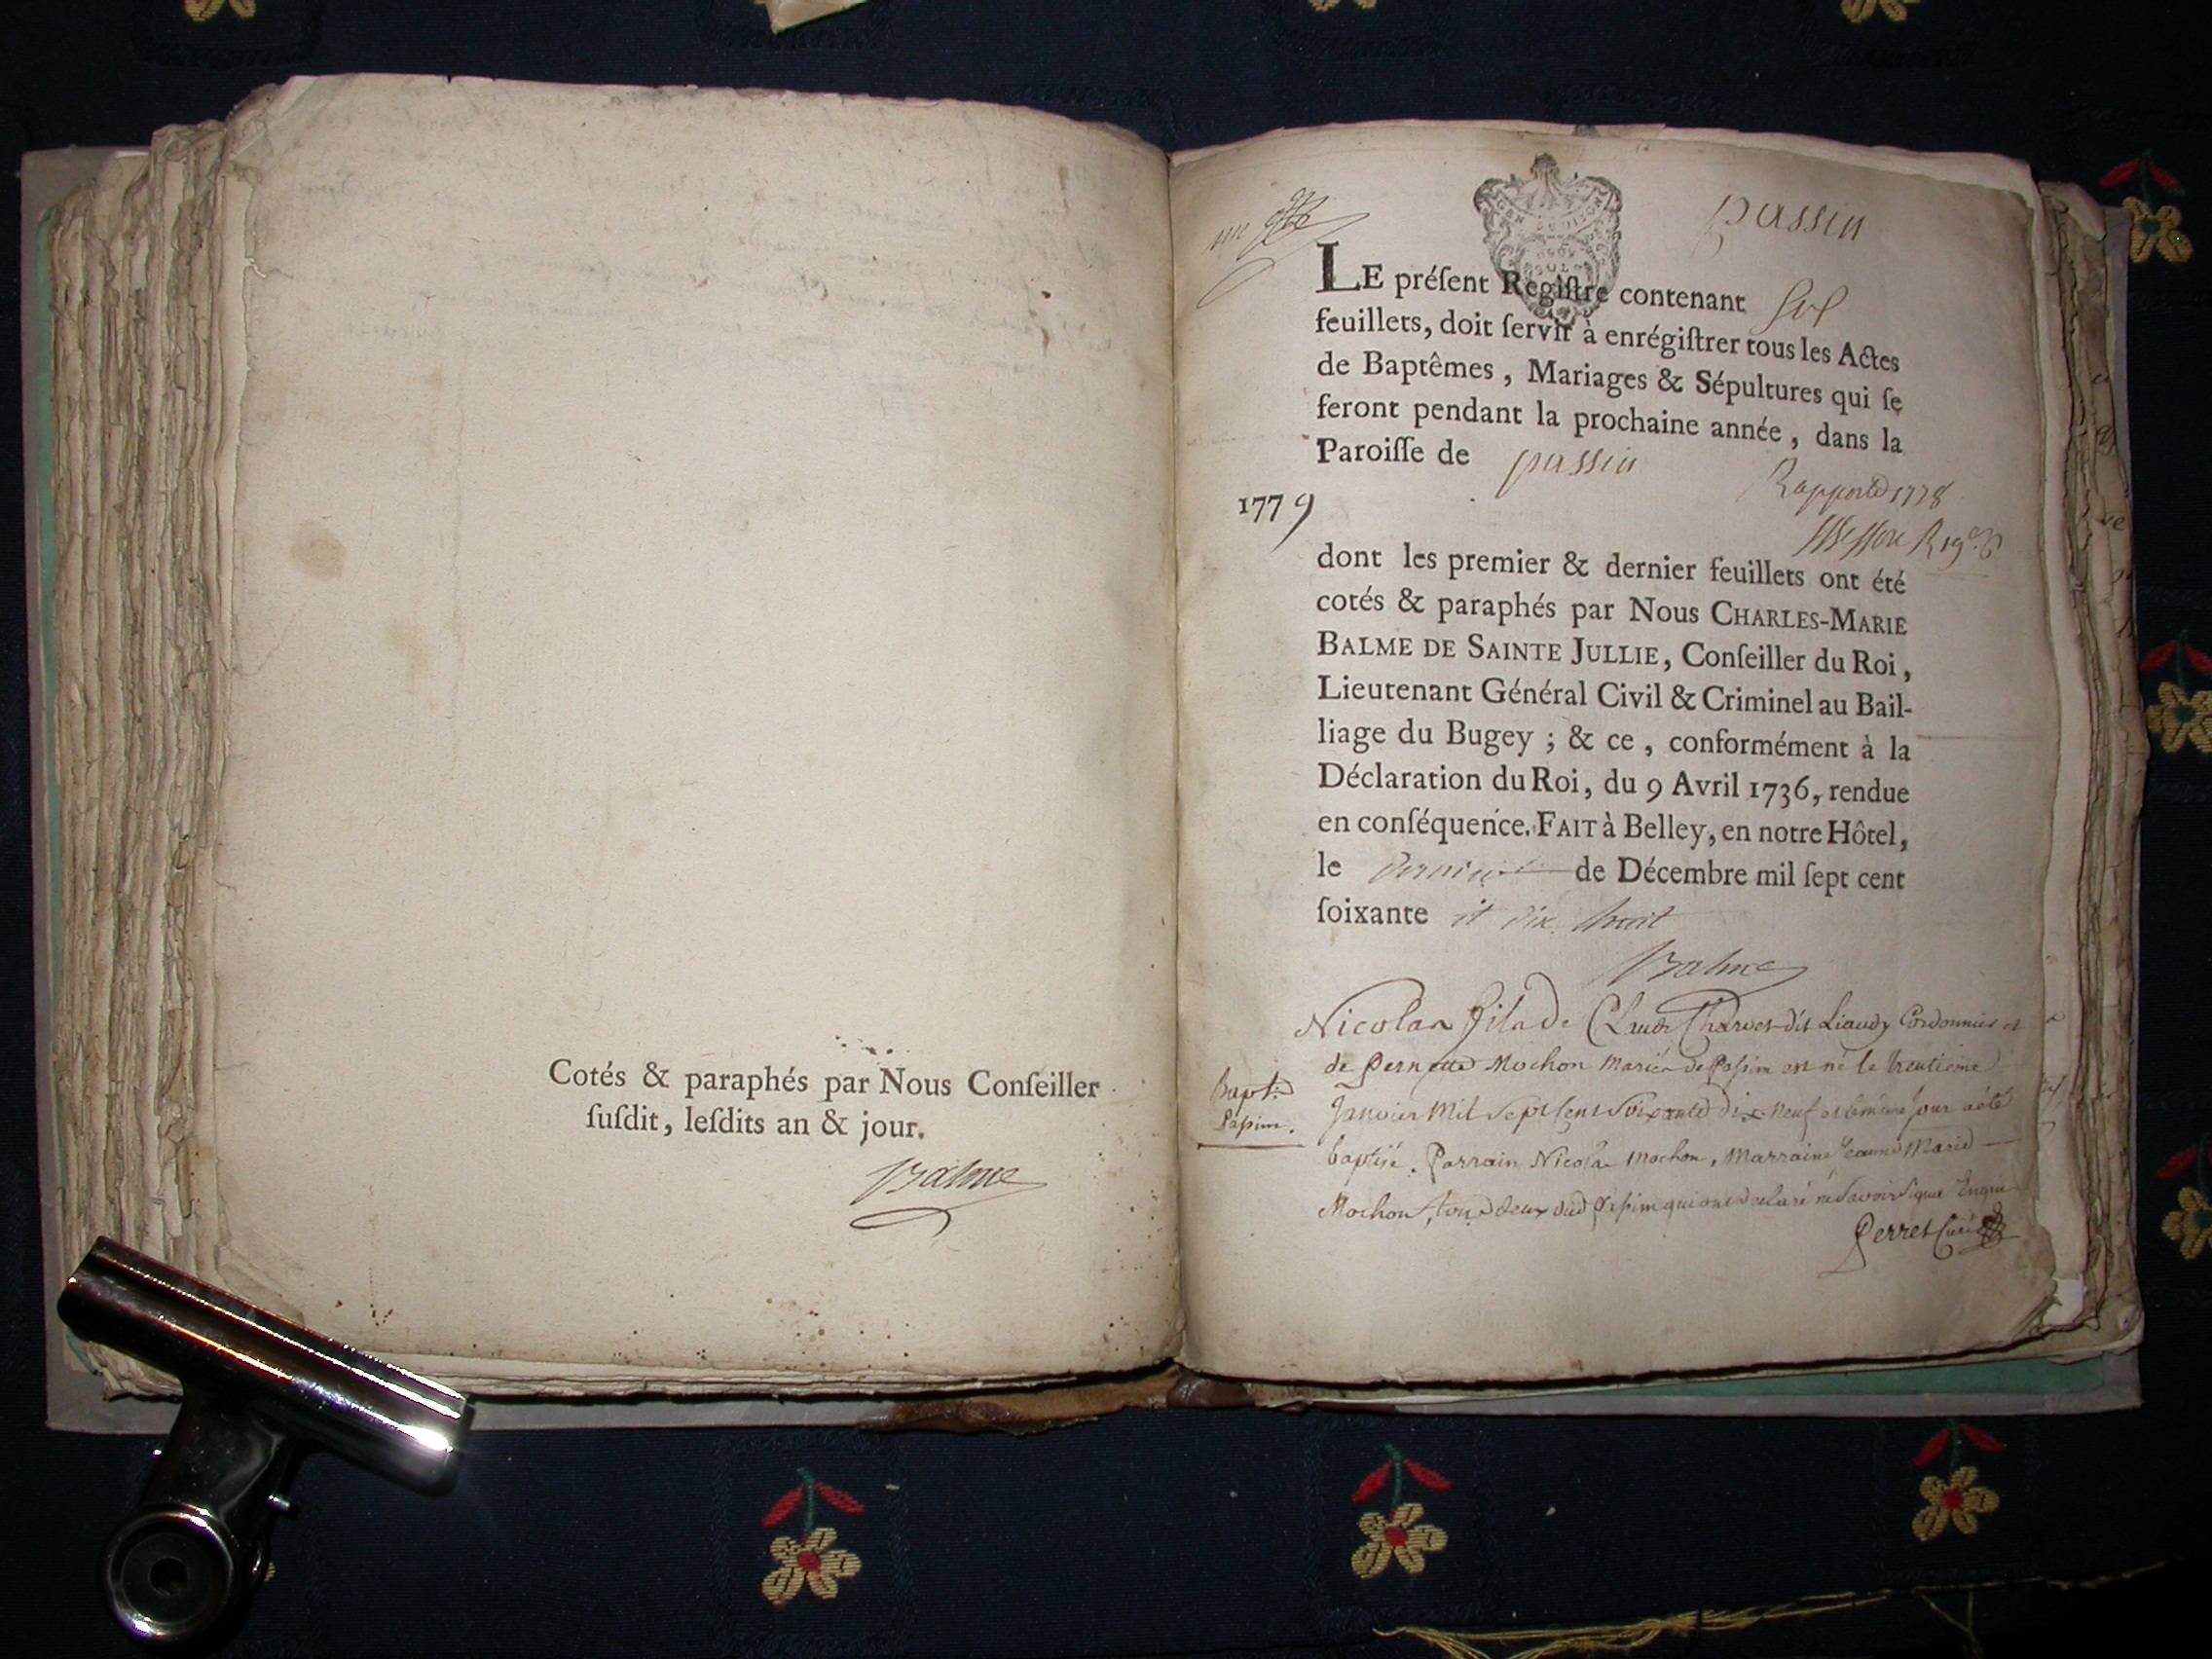 Cotés & paraphés par Nous Conſeiller
ſuſdit, leſdits an & jour.
Balme
un
passin
LE préſent Regiſtre contenant
feuillets, doit ſervir à enrégiſtrer tous les Actes
de Baptêmes, Mariages & Sépultures qui ſe
feront pendant la prochaine année, dans la
Paroiſſe de passin
Rapporté 1778
1779
dont les premier & dernier feuillets ont été
cotés & paraphés par Nous CHARLES-MARIE
BALME DE SAINTE JULLIE, Conſeiller du Roi,
Lieutenant Général Civil & Criminel au Bail-
liage du Bugey; & ce, conformément à la
Déclaration du Roi, du 9 Avril 1736, rendue
en conſéquence. FAIT à Belley, en notre Hôtel,
le dernier de Décembre mil ſept cent
ſoixante et dix huit
Balme
Nicolas fils de Claude Charvet dit Liaudy Cordonnier et
de Pernette Mochon Mariés de Passin est né le trentieme
Bapt.
Passin.
Janvier Mil Sept Cent Soixante dix Neuf et le même jour a été
baptisé. Parrain Nicolas Mochon, Marraine Jeanne Marie
Mochon, tous deux dud Passin qui ont declaré ne Savoir Signer Enquis
Perret Curé